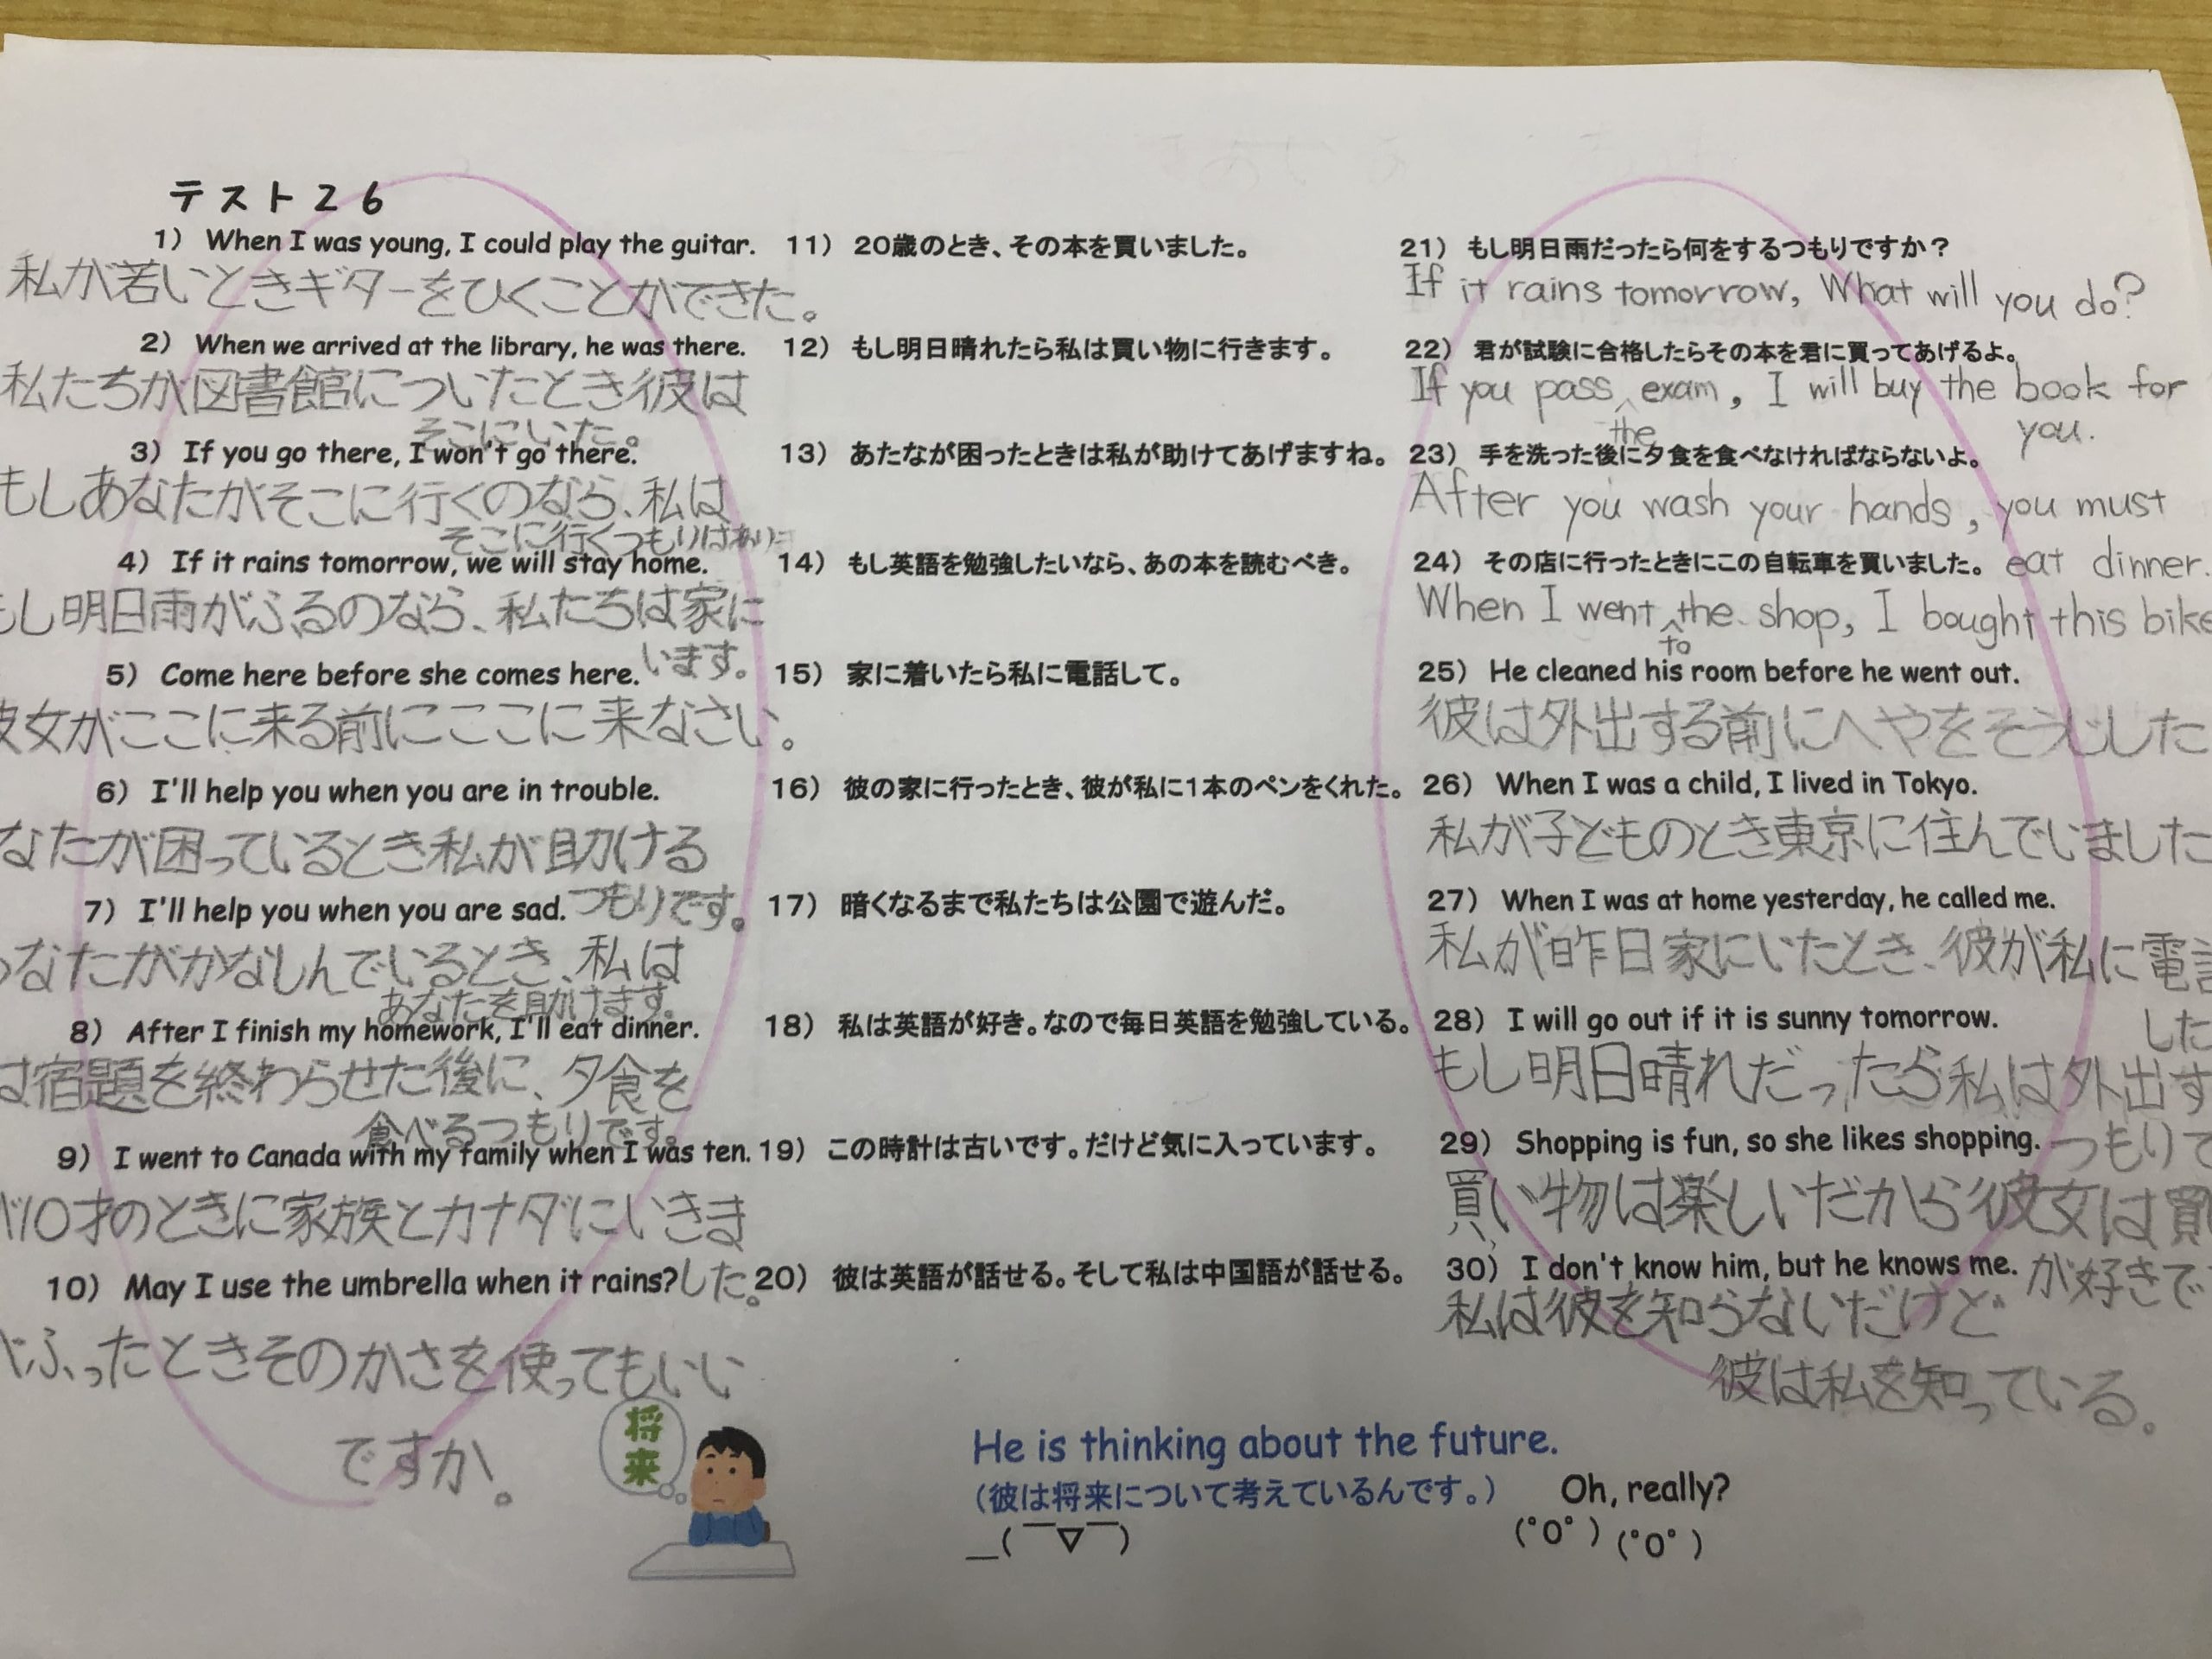 テスト26
1) When I was young, I could play the guitar.
私が若いときギターをひくことができた。
2) When we arrived at the library, he was there.
私たちが図書館についたとき彼は
そこにいた。
3) If you go there, I won't go there.
もしあなたがそこに行くのなら、私は
そこに行くつもりはあり
4) If it rains tomorrow, we will stay home.
もし明日雨がふるのなら、私たちは家に
います。
5) Come here before she comes here.
彼女がここに来る前にここに来なさい。
6) I'll help you when you are in trouble.
なたが困っているとき私が助ける
つもりです。
7) I'll help you when you are sad.
なたがかなしんでいるとき、私は
あなたを助けます。
8) After I finish my homework, I'll eat dinner.
は宿題を終わらせた後に、夕食を
食べるつもりです。
9) I went to Canada with my family when I was ten.
が10才のときに家族とカナダにいきま
した。
10) May I use the umbrella when it rains?
がふったときそのかさを使ってもいい
ですか。
11) 20歳のとき、その本を買いました。
12) もし明日晴れたら私は買い物に行きます。
13) あたなが困ったときは私が助けてあげますね。
14) もし英語を勉強したいなら、あの本を読むべき。
15) 家に着いたら私に電話して。
16) 彼の家に行ったとき、彼が私に1本のペンをくれた。
17) 暗くなるまで私たちは公園で遊んだ。
18) 私は英語が好き。なので毎日英語を勉強している。
19) この時計は古いです。だけど気に入っています。
20) 彼は英語が話せる。そして私は中国語が話せる。
21) もし明日雨だったら何をするつもりですか？
If it rains tomorrow, What will you do?
22) 君が試験に合格したらその本を君に買ってあげるよ。
If you pass the exam, I will buy the book for
you.
23) 手を洗った後に夕食を食べなければならないよ。
After you wash your hands, you must
eat dinner.
24) その店に行ったときにこの自転車を買いました。
When I went to the shop, I bought this bike
25) He cleaned his room before he went out.
彼は外出する前にへやをそうじした
26) When I was a child, I lived in Tokyo.
私が子どものとき東京に住んでいました
27) When I was at home yesterday, he called me.
私が昨日家にいたとき、彼が私に電話
した
28) I will go out if it is sunny tomorrow.
もし明日晴れだったら私は外出す
つもりで
29) Shopping is fun, so she likes shopping.
買い物は楽しいだから彼女は買
が好きで
30) I don't know him, but he knows me.
私は彼を知らないだけど
彼は私を知っている。
将来
He is thinking about the future.
（彼は将来について考えているんです。）
Oh, really?
＿(￣▽￣)
(ﾟOﾟ) (ﾟOﾟ)